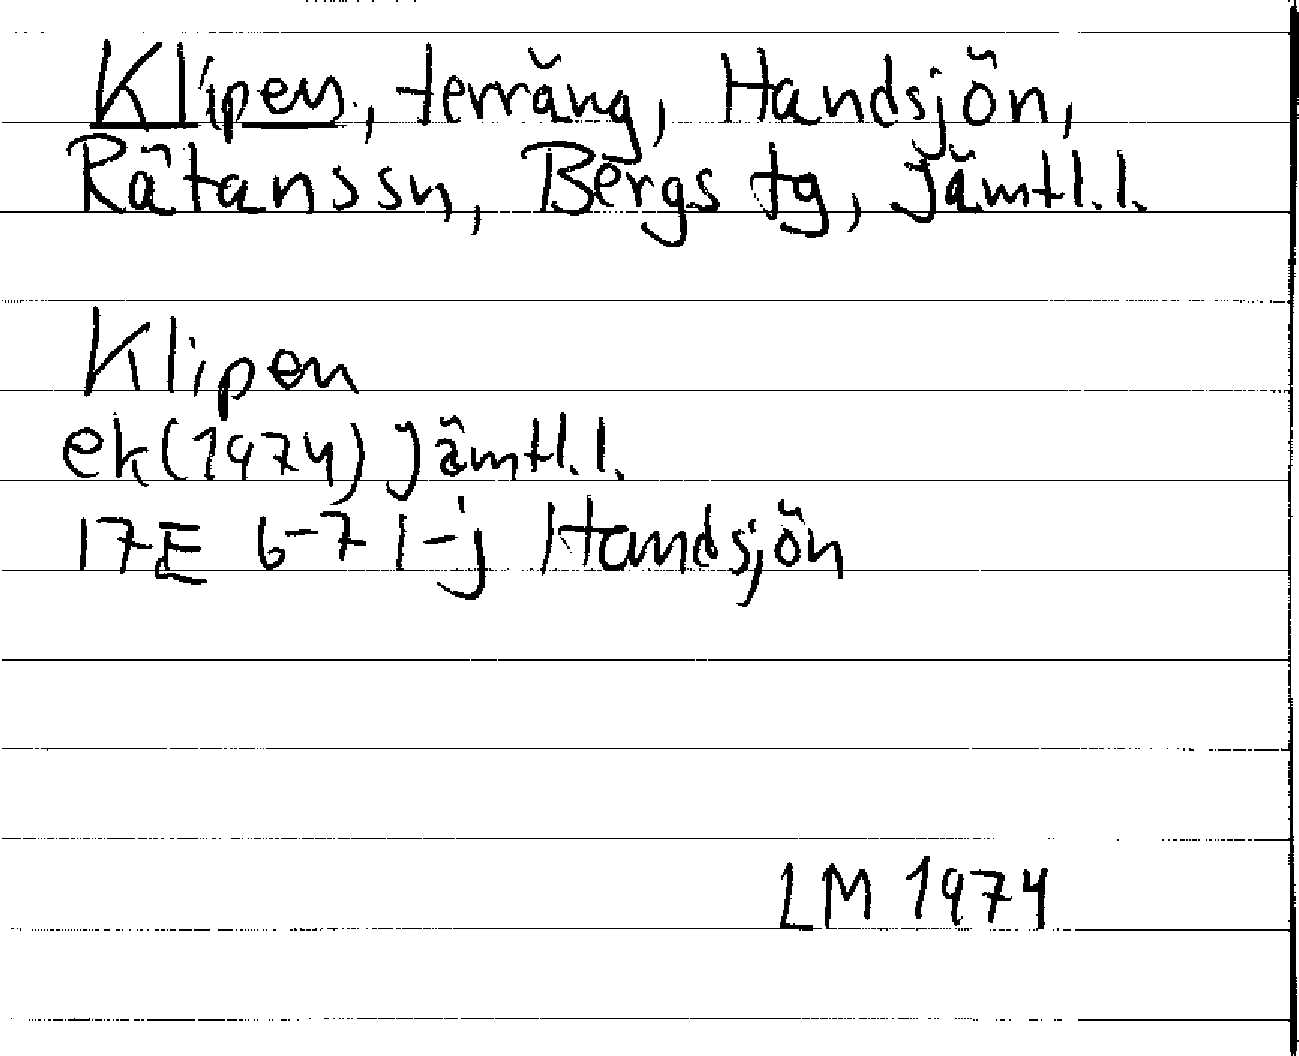 Klipen, terräng, Handsjön,
Rätanssn, Bergs tg, Jämtl.l.
Klipen
ek(1974) Jämtl.l.
17E 6-7 i-j Handsjön
LM 1974